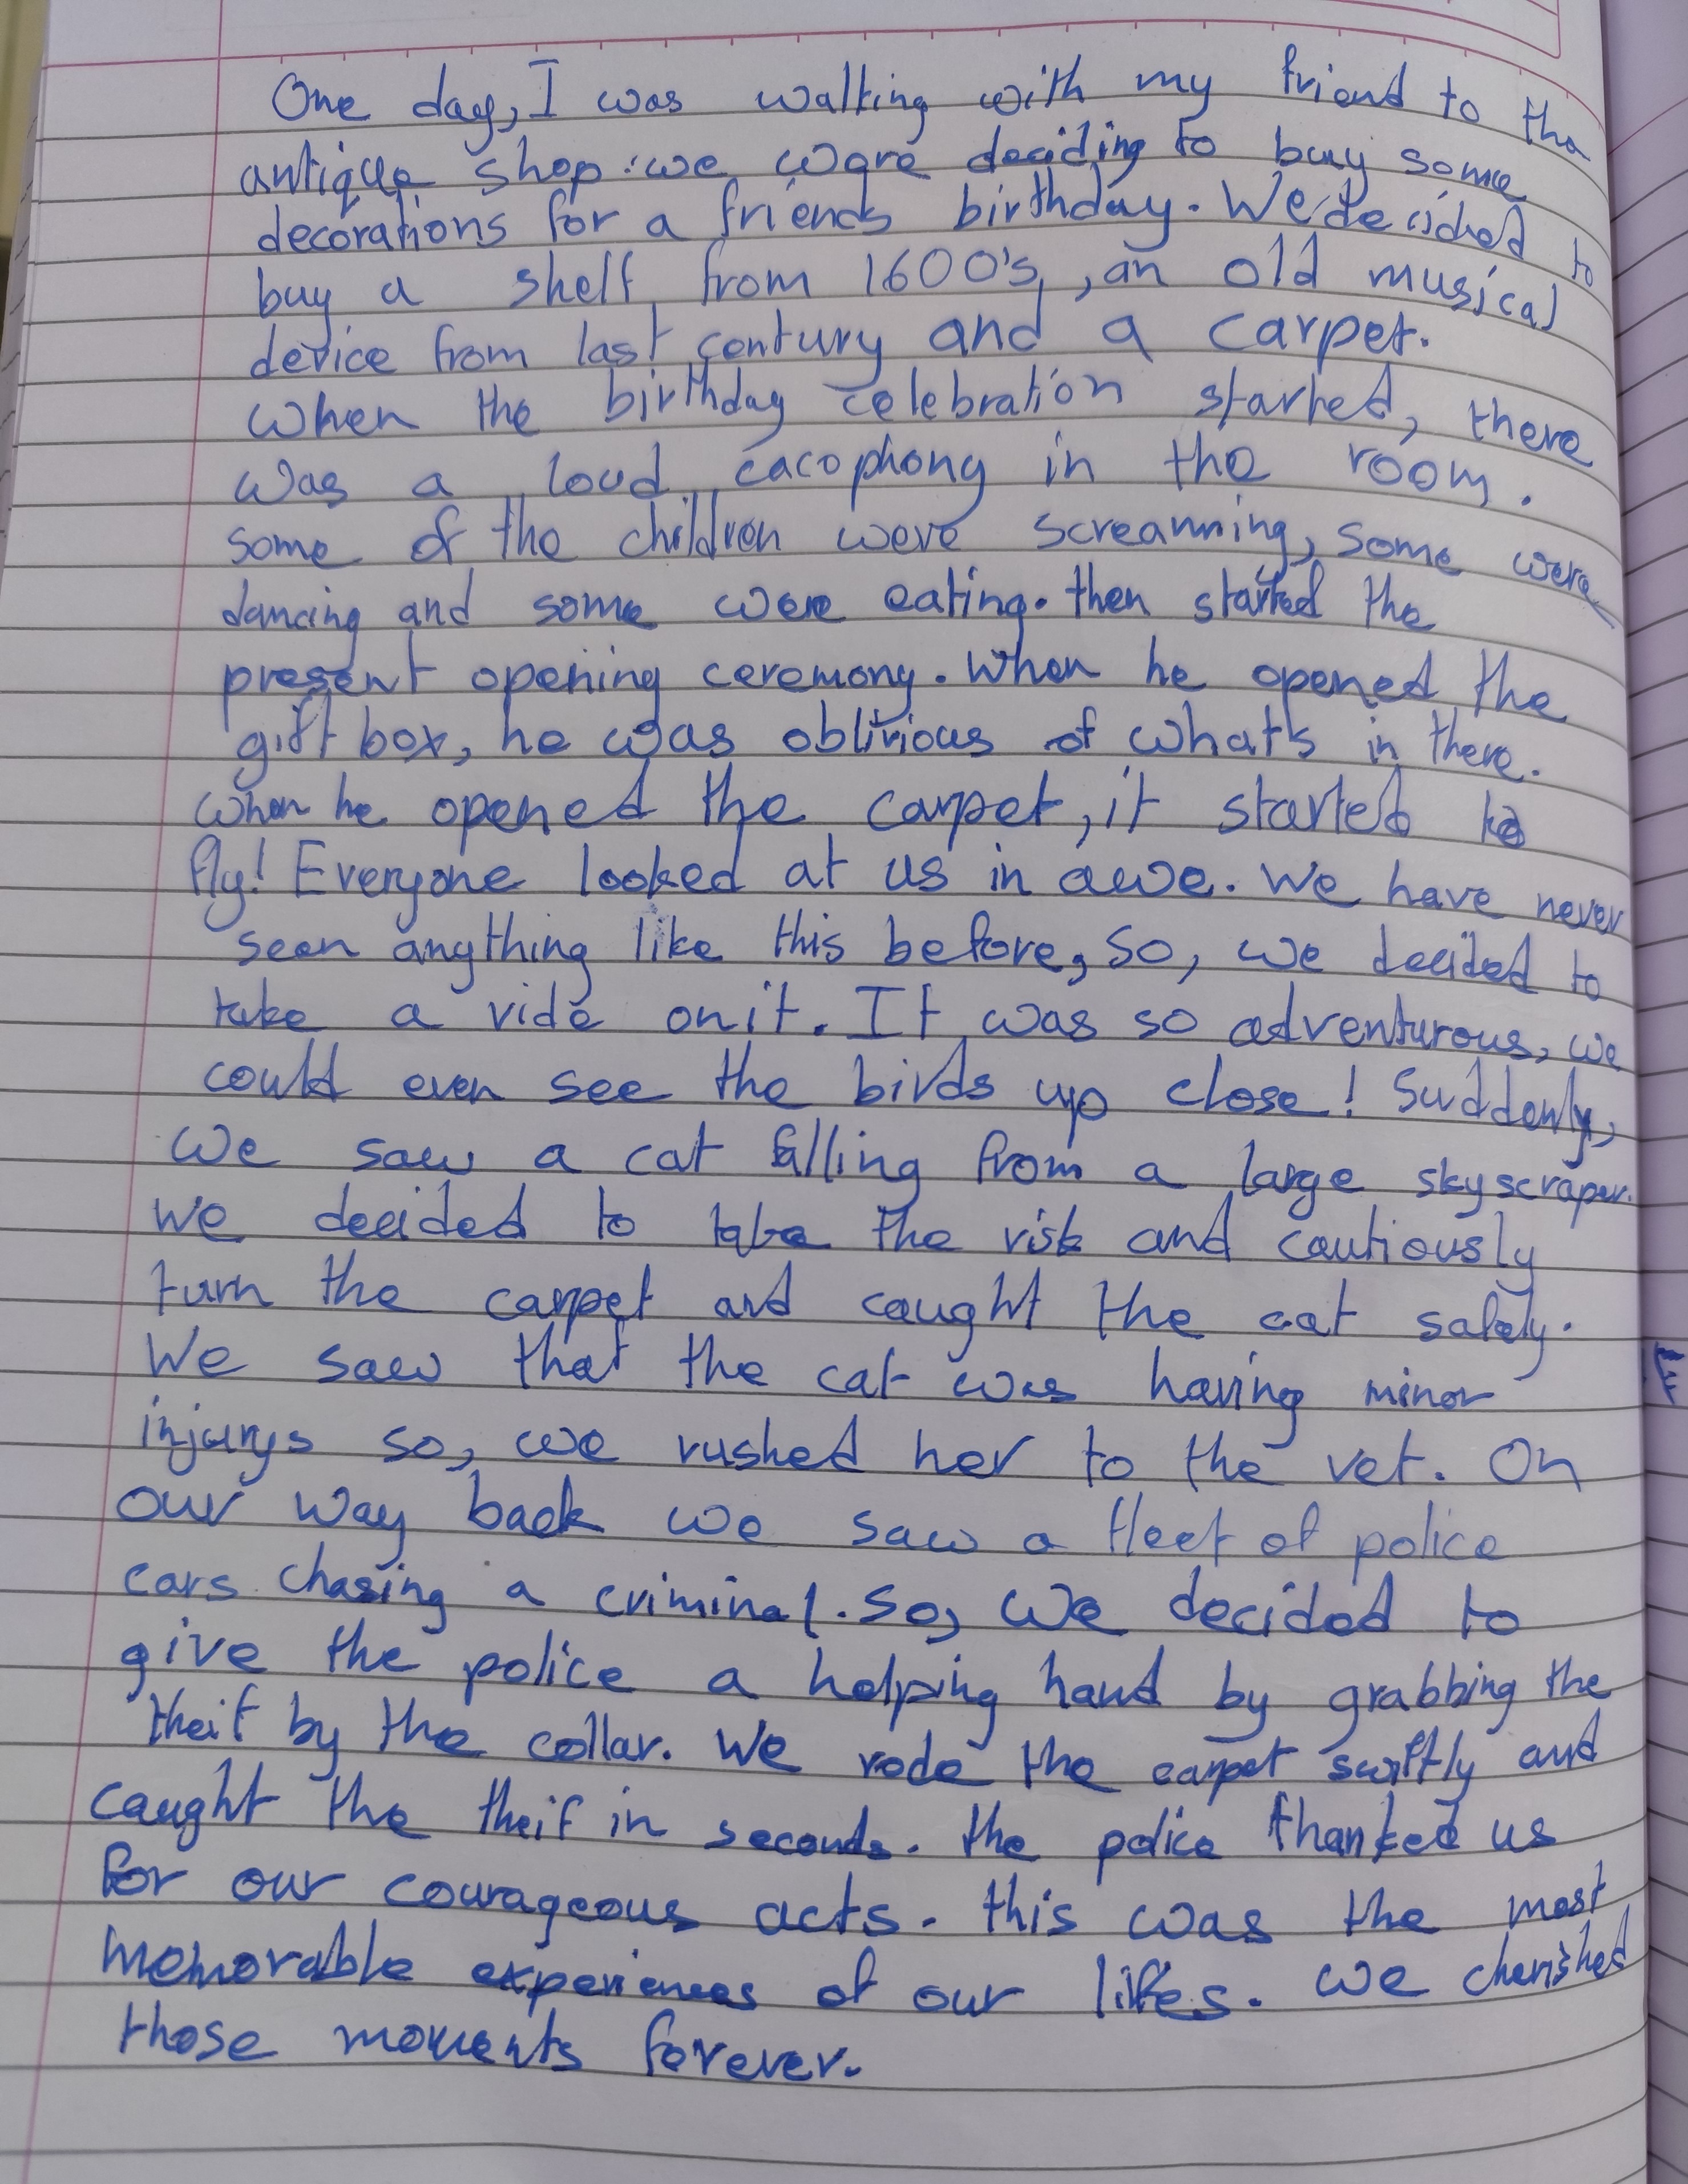 One day, I was walking with my friend to the
antique shop. we were deciding to buy some
decorations for a friends birthday. We decided to
buy a shelf from 1600's, an old musical
device from last century and a carpet.
When the birthday celebration started, there
was a loud cacophony in the room.
some of the children were screamming, some were
dancing and some were eating. then started the
present opening ceremony. When he opened the
gift box, he was oblivious of what's in there.
When he opened the carpet, it started to
fly! Everyone looked at us in awe. We have never
seen anything like this before, so, we decided to
take a ride on it. It was so adventurous, we
could even see the birds up close! Suddenly,
We saw a cat falling from a large skyscraper.
We decided to take the risk and cautiously
turn the carpet and caught the cat safely.
We saw that the cat was having minor
injurys so, we rushed her to the vet. On
our way back we saw a fleet of police
cars chasing a criminal. So, We decided to
give the police a helping hand by grabbing the
theif by the collar. We rode the carpet swiftly and
caught the theif in seconds. the police thanked us
for our courageous acts. this was the most
memorable experiences of our lifes. We cherished
those moments forever.